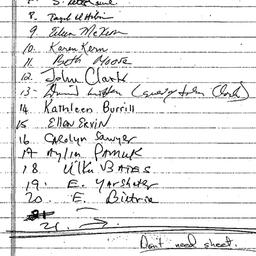 8.
9. Eden McKenn
10. Karen Kern
11. Beth Moore
12. John Clark
13- David (guest of John Clark)
14 Kathleen Burrill
15 Ellen Ervin
16 Carolyn Sawyer
17 Aylin Pamuk
18 Ülkü Bates
19. E. Yarshater
20. E. Birnie
21.
Don't need sheet.